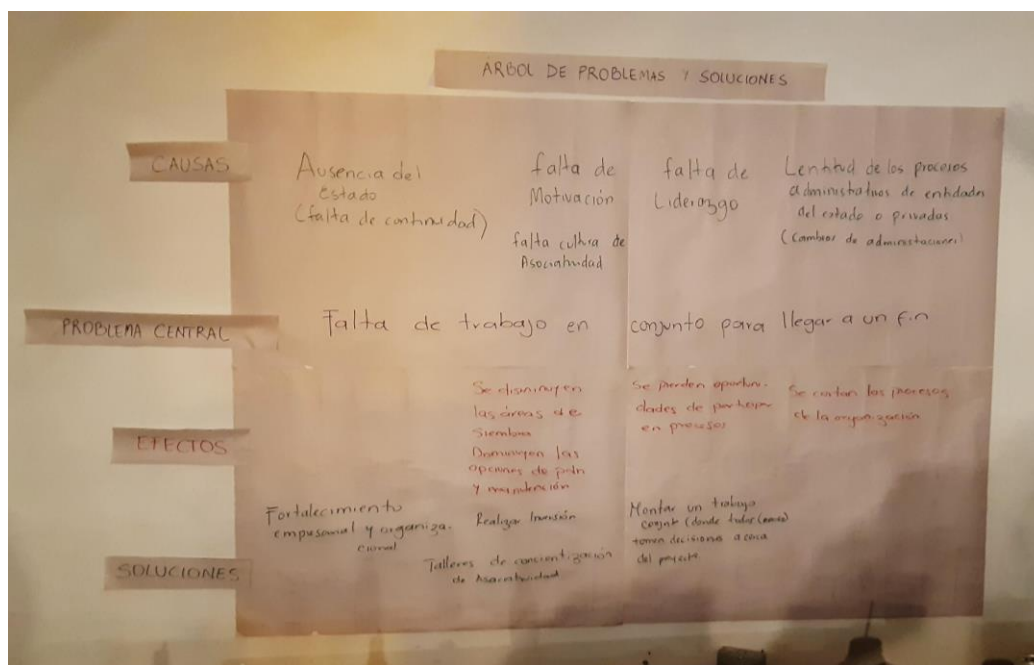 ÁRBOL DE PROBLEMAS Y SOLUCIONES
CAUSAS
Ausencia del
Estado
(falta de continuidad)
falta de
Motivación
falta cultura de
Asociatividad
falta de
Liderazgo
Lentitud de los procesos
administrativos de entidades
del estado o privadas
(Cambios de administraciones)
PROBLEMA CENTRAL
Falta de trabajo en conjunto para llegar a un fin
EFECTOS
Se disminuyen
las áreas de
Siembra
Disminuyen las
opciones de
y
Se pierden oportuni-
dades de participar
en procesos
Se cortan los procesos
de la organización
SOLUCIONES
Fortalecimiento
empresarial y organiza-
cional
Realizar Inversión
Talleres de concientización
de Asociatividad
Montar un trabajo
(donde todos
tomen decisiones acerca
del proyecto